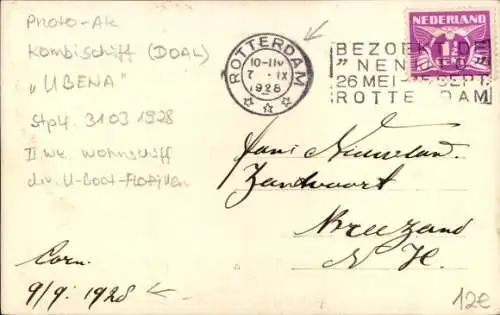 Photo-Ak
Kombischiff (DOAL)
„UBENA"
Stplf. 31 03 1928
II wk. Wohnschiff
div. U-Boot-Flotillen
ROTTERDAM
10-11V
7 IX
1928
BEZOEKT DE
„NENIJTO"
26 MEI - SEPT.
ROTTERDAM
NEDERLAND
1½
CENT
Zandvoort
Breezand
N. H.
Corn.
9/9. 1928
12€